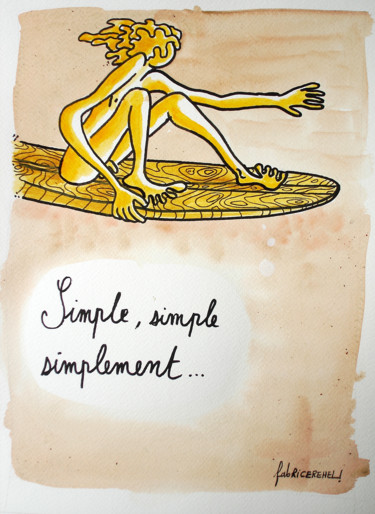 Simple, simple
simplement...
fabRICEREHEL!